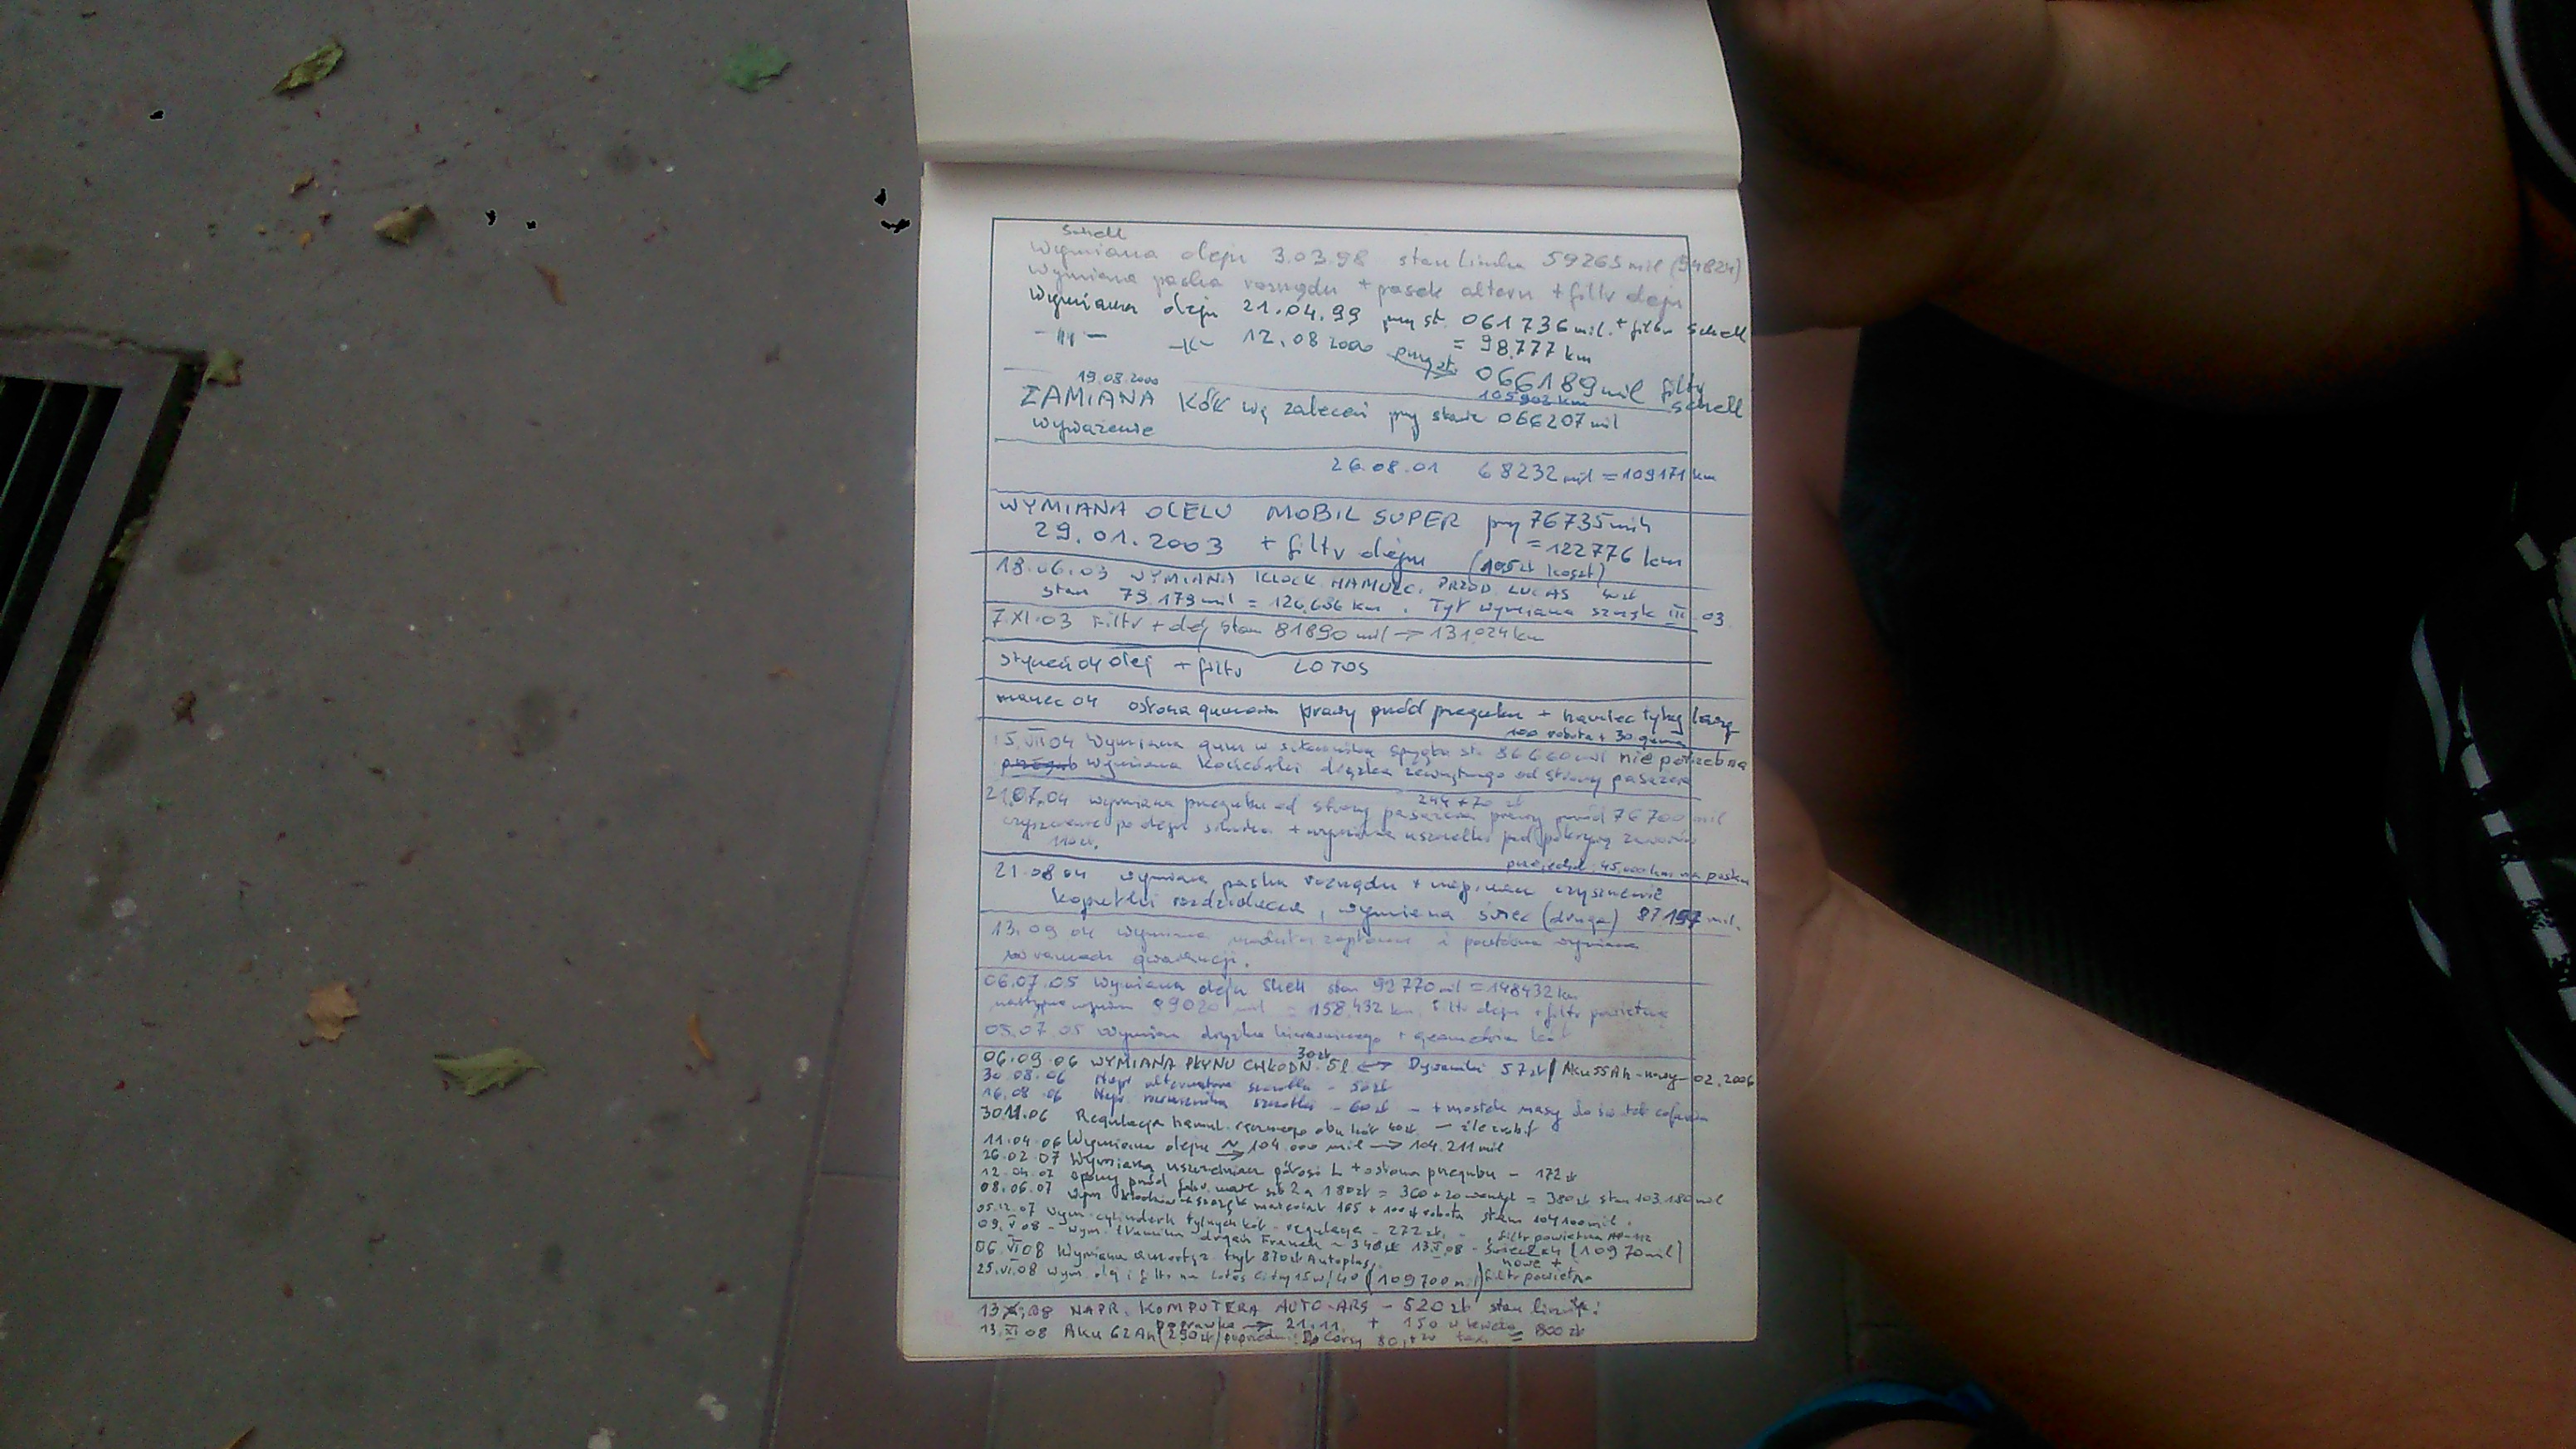 Schell
Wymiana oleju 3.03.98 stan licznika 59265 mil (94824)
Wymiana paska rozrządu + pasek altern + filtr oleju
Wymiana oleju 21.04.99 przy st. 061736 mil. + filtr Schell
= 98.777 km
12.08 2000 066189 mil filtr
105902 km Schell
19.08.2000
ZAMIANA KÓŁ wg zaleceń przy stanie 066207 mil
wyważenie
26.08.01 68232 mil = 109171 km
WYMIANA OLEJU MOBIL SUPER przy 76735 mil
29.01.2003 + filtr oleju = 122776 km
(105 zł koszt)
18.06.03 WYMIANA KLOCK. HAMULC. PRZÓD LUCAS
stan 79.179 mil = 126.686 km. Tył wymiana szczęk III 03
7.XI.03 Filtr + olej stan 81890 mil → 131024 km
styczeń 04 olej + filtr LOTOS
marzec 04 osłona gumowa prawy przód przegubu + hamulec tylny lewy
100 robota + 30 guma
15.VII 04 Wymiana gum w st. 86660 mil nie potrzebna
wymiana końcówki drążka zewnętrznego od strony pasażera
244 + 70 zł
21.07.04 wymiana przegubu od strony pasażera prawy przód 76700 mil
czyszczenie po oleju silnika + wymiana uszczelki pod pokrywą zaworów
110 zł.
przejechał 45.000 km na pasku
21.08 04 wymiana paska rozrządu + czyszczenie
kopułki rozdzielacza, wymiana świec (druga) 87.157 mil.
13.09 04 wymiana modułu zapłonu i powtórna wymiana
w ramach gwarancji.
06.07.05 Wymiana oleju Shell stan 92770 mil = 148432 km
99020 mil = 158.432 km filtr oleju + filtr powietrza
05.07 05 Wymiana drążka kierowniczego + geometria kół
30 zł
06.09 06 WYMIANA PŁYNU CHŁODN. 5l Dynamki 57 zł / Aku 55Ah - nowy - 02.2006
30.08.06 Napr. alternatora szczotki - 50 zł
16.08 06 Napr. rozrusznika szczotki - 60 zł - + mostek masy do
30.11.06 Regulacja hamul. ręcznego obu kół 40 zł - źle zrobił
11.04 06 Wymiana oleju ~ 104.000 mil → 104.211 mil
26.02 07 Wymiana uszczelniacz półosi L + osłona przegubu - 172 zł
12.04.07 opony przód szt 2 a 180 zł = 360 + 20 = 380 zł stan 103.180 mil
08.06.07 Wym. szczęk materiał 165 + 100 zł robota stan 104100 mil.
05.12.07 Wym. cylinderk. tylnych kół - regulacja - 272 zł.
09.V 08 - Wym. tłumika Franek ~ 340 zł 13.V.08 - świece x4 (10970 mil)
filtr powietrza AP-112
06 VI 08 Wymiana amortyz. tył 870 zł Autoplas
nowe +
25.VI.08 wym. olej i filtr na Lotos City 15W/40 (109700 mil) filtr powietrza
08 NAPR. KOMPUTERA AUTO-ARS - 520 zł stan licznika:
poprawka → 21.11. + 150 = 800 zł
13.XI 08 Aku 62Ah (290 zł